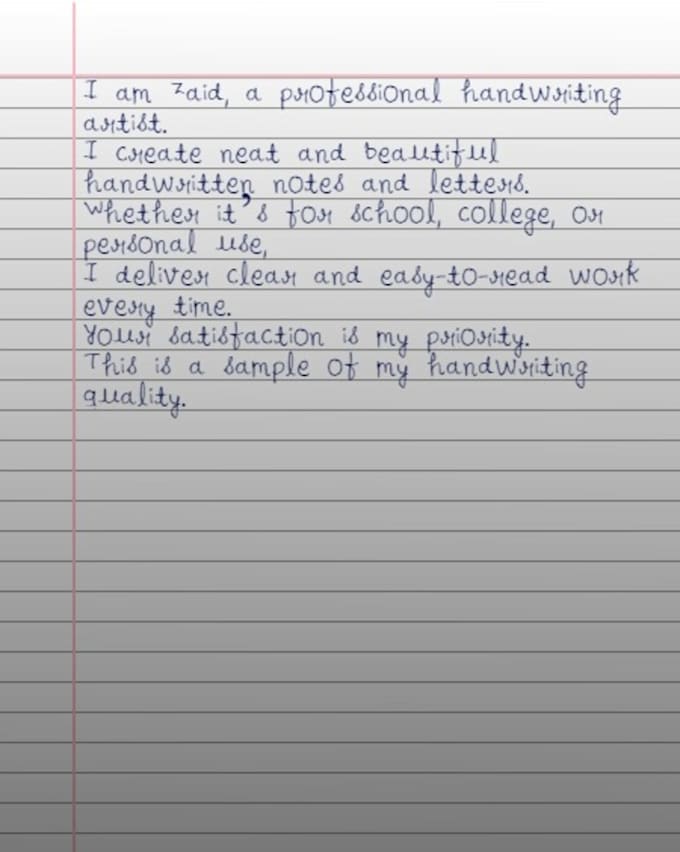 I am zaid, a professional handwriting
artist.
I create neat and beautiful
handwritten notes and letters.
Whether it's for school, college, or
personal use,
I deliver clear and easy-to-read work
every time.
Your satisfaction is my priority.
This is a sample of my handwriting
quality.